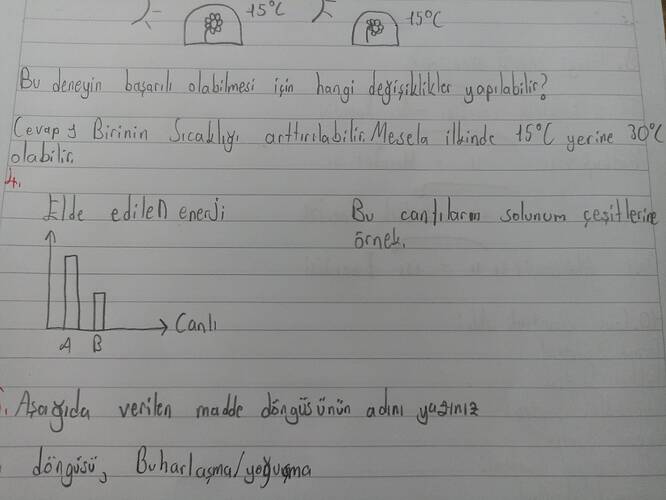 15°C 15°C
Bu deneyin başarılı olabilmesi için hangi değişiklikler yapılabilir?
Cevap; Birinin Sıcaklığı arttırılabilir. Mesela ilkinde 15°C yerine 30°C
olabilir.
4.
Elde edilen enerji
Bu canlıların solunum çeşitlerine
örnek.
Canlı
A B
Aşağıda verilen madde döngüsünün adını yazınız
döngüsü, Buharlaşma/yoğuşma